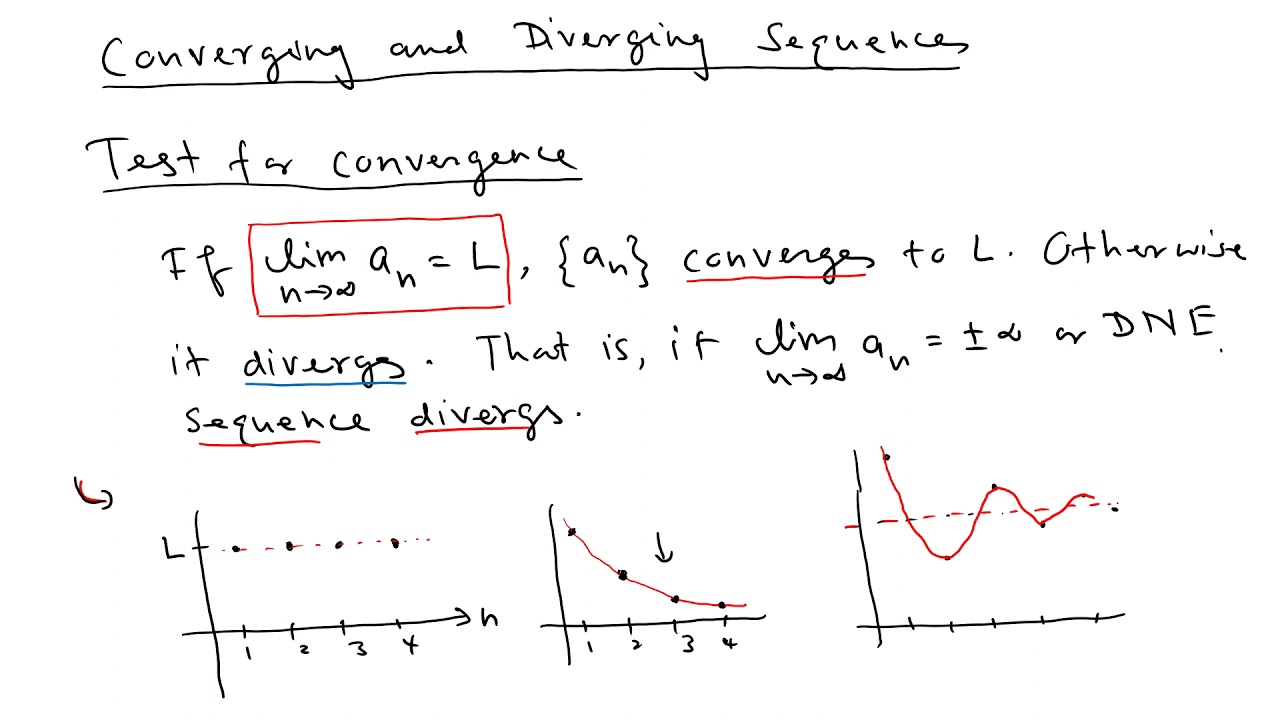 Converging and Diverging Sequences
Test for convergence
If lim n→∞ aₙ = L, {aₙ} converges to L. Otherwise
it divergs. That is, if lim n→∞ aₙ = ±∞ or DNE.
sequence divergs.
L
n
1 2 3 4
1 2 3 4